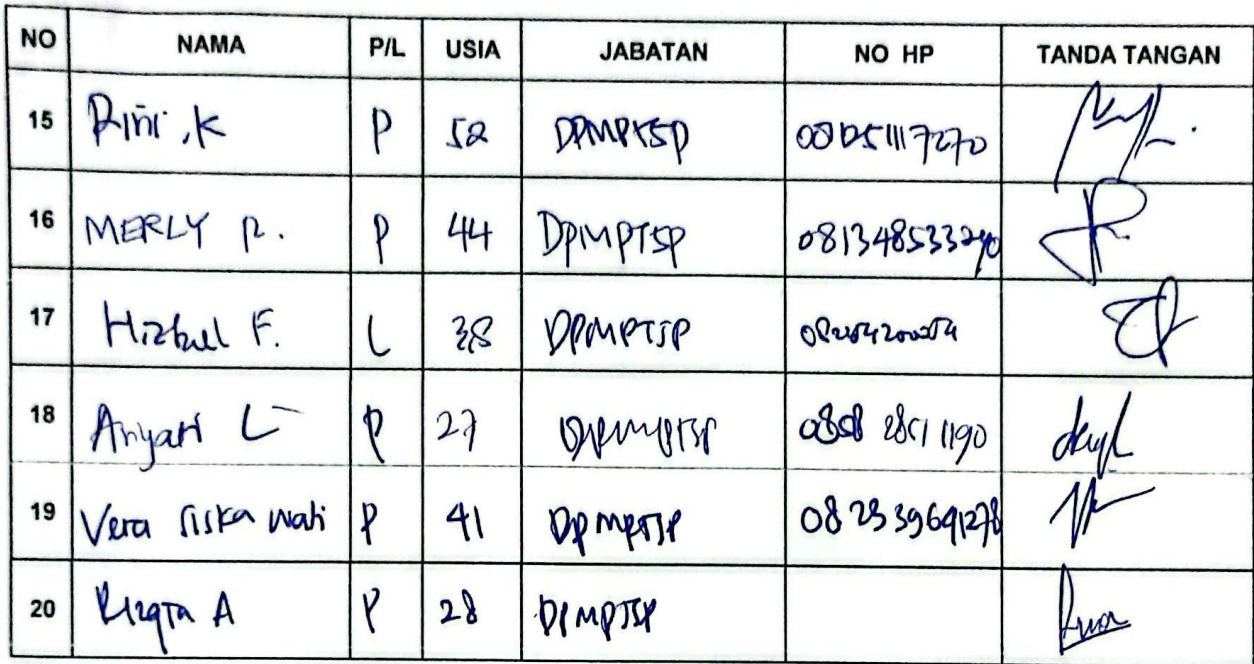 NO NAMA P/L USIA JABATAN NO HP TANDA TANGAN
15 Rini .K P 52 DPMPTSP 08125117270
16 MERLY R. P 44 DPMPTSP 081348533290
17 Hizbul F. L 38 DPMPTSP
18 Ariyati L P 27 DPMPTSP 0858 2851 1190
19 Vera riska wati P 41 DPMPTSP 082339691278
20 Rizqia A P 28 DPMPTSP